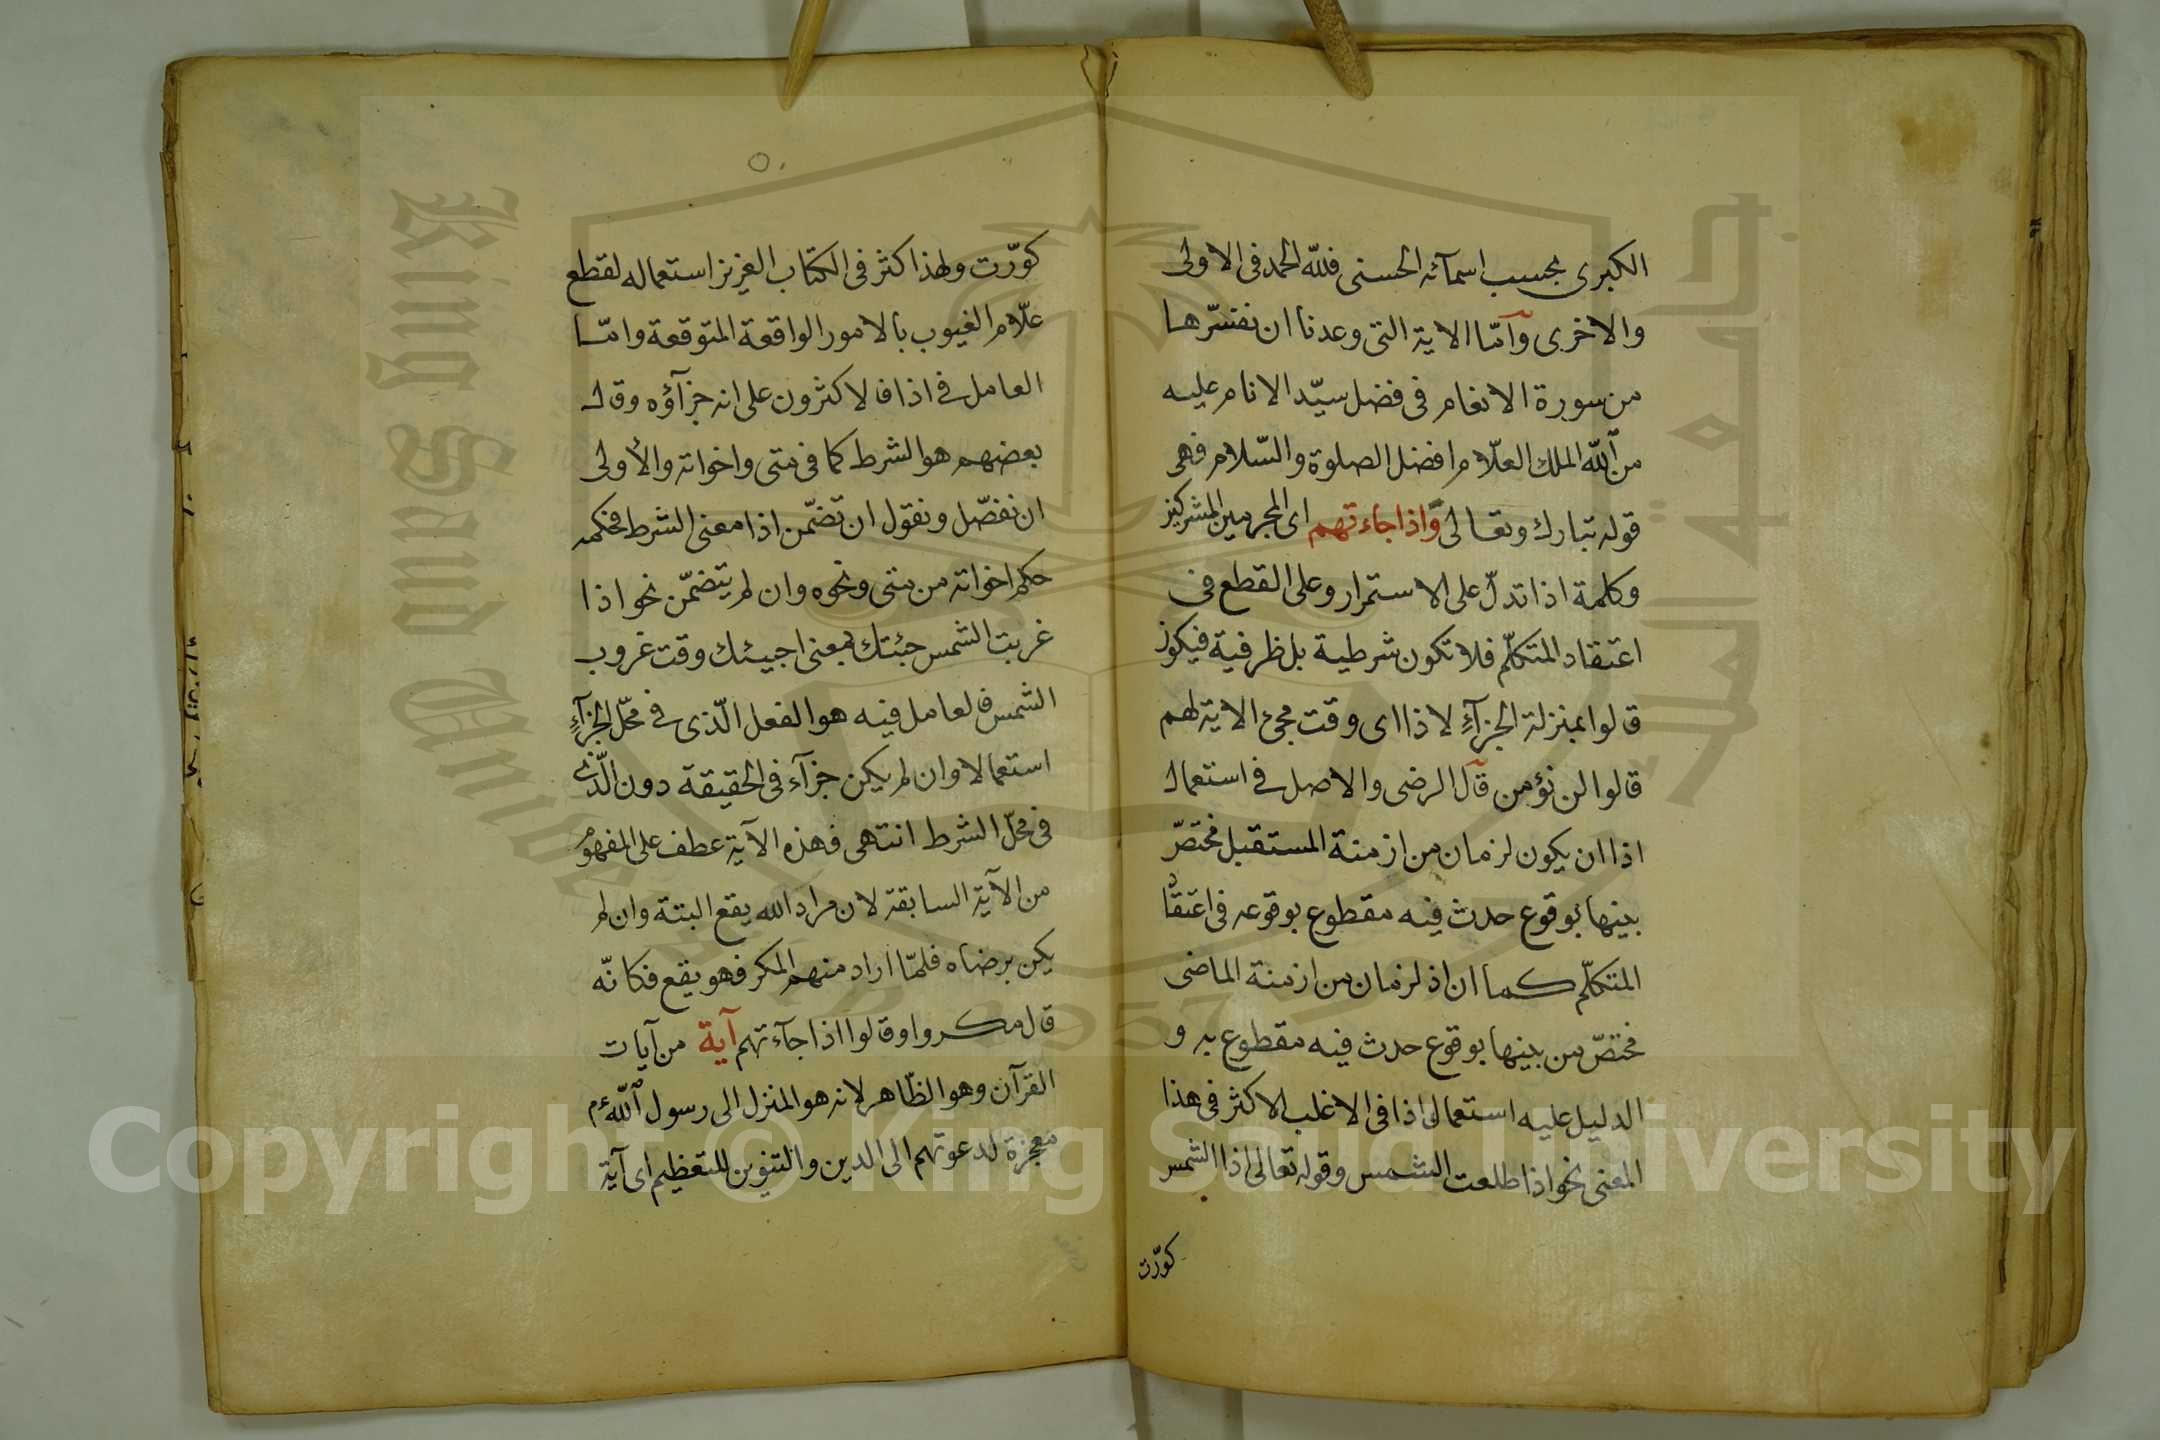 الكبرى بحسب اسمآئه الحسنى فلله الحمد فى الاولى
والاخرى وآمّا الاية التى وعدنا ان نفسّرها
من سورة الانعام فى فضل سيّد الانام عليه
من الله الملك العلّام افضل الصلوة والسّلام فهى
قوله تبارك وتعالى واذا جاءتهم اى المجرمين المشركين
وكلمة اذا تدلّ على الاستمرار وعلى القطع فى
اعتقاد المتكلّم فلا تكون شرطية بل ظرفية فيكون
قالوا بمنزلة الجزآءِ لاذا اى وقت مجئ الاية لهم
قالوا لن نؤمن قآل الرضى والاصل فى استعمال
اذا ان يكون لزمان من ازمنة المستقبل مختصّ
بينها بوقوع حدث فيه مقطوع بوقوعه فى اعتقاد
المتكلّم كما ان اذ لزمان من ازمنة الماضى
مختصّ من بينها بوقوع حدث فيه مقطوع به و
الدليل عليه استعمال اذا فى الاغلب الاكثر فى هذا
المعنى نحو اذا طلعت الشمس وقوله تعالى اذا الشمس
كوّرت
كوّرت ولهذا كثر فى الكتاب العزيز استعماله لقطع
علّام الغيوب بالامور الواقعة المتوقعة وامّا
العامل فى اذا فالاكثرون على انه جزآؤه وقال
بعضهم هو الشرط كما فى متى واخواته والأولى
ان نفصّل ونقول ان تضمّن اذا معنى الشرط فحكمه
حكم اخواته من متى ونحوه وان لم يتضمّن نحو اذا
غربت الشمس جئتك بمعنى اجيئك وقت غروب
الشمس فالعامل فيه هو الفعل الّذى فى محلّ الجزآءِ
استعمالا وان لم يكن جزآء فى الحقيقة دون الّذى
فى محلّ الشرط انتهى فهذه الآية عطف على المفهوم
من الآية السابقة لان مراد الله يقع البتة وان لم
يكن برضاه فلمّا اراد منهم المكر فهو يقع فكانّه
قال مكروا وقالوا اذا جآءتهم آية من آيات
القرآن وهو الظّاهر لانه هو المنزل الى رسول الله م
معجزة لدعوتهم الى الدين والتنوين للتعظيم اى آية
Copyright © King Saud University
King Saud University
1957